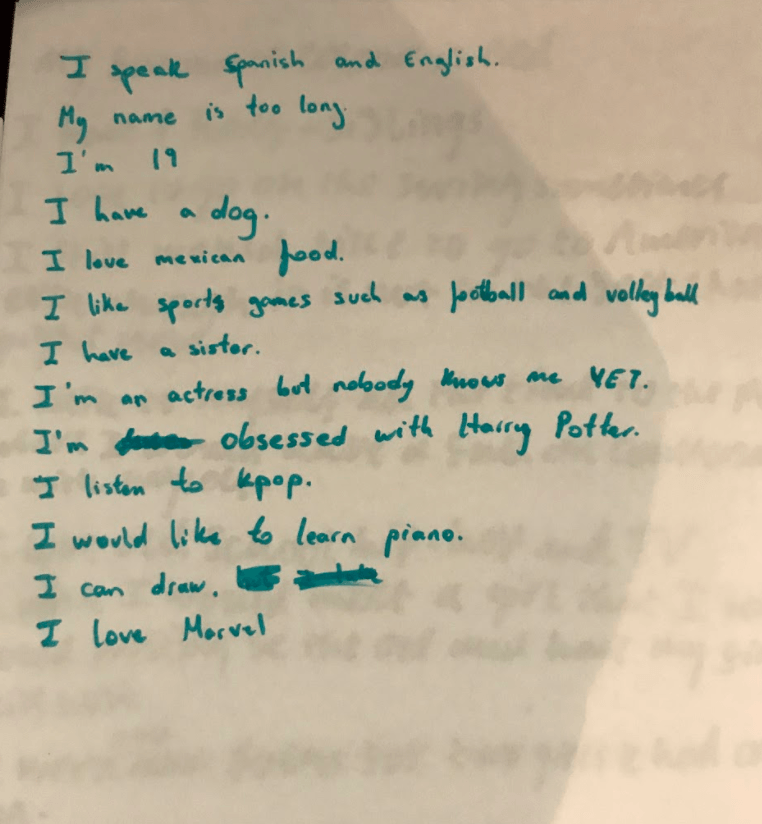 I speak Spanish and English.
My name is too long.
I'm 19
I have a dog.
I love mexican food.
I like sports games such as football and volleyball
I have a sister.
I'm an actress but nobody knows me YET.
I'm obsessed with Harry Potter.
I listen to kpop.
I would like to learn piano.
I can draw.
I love Marvel